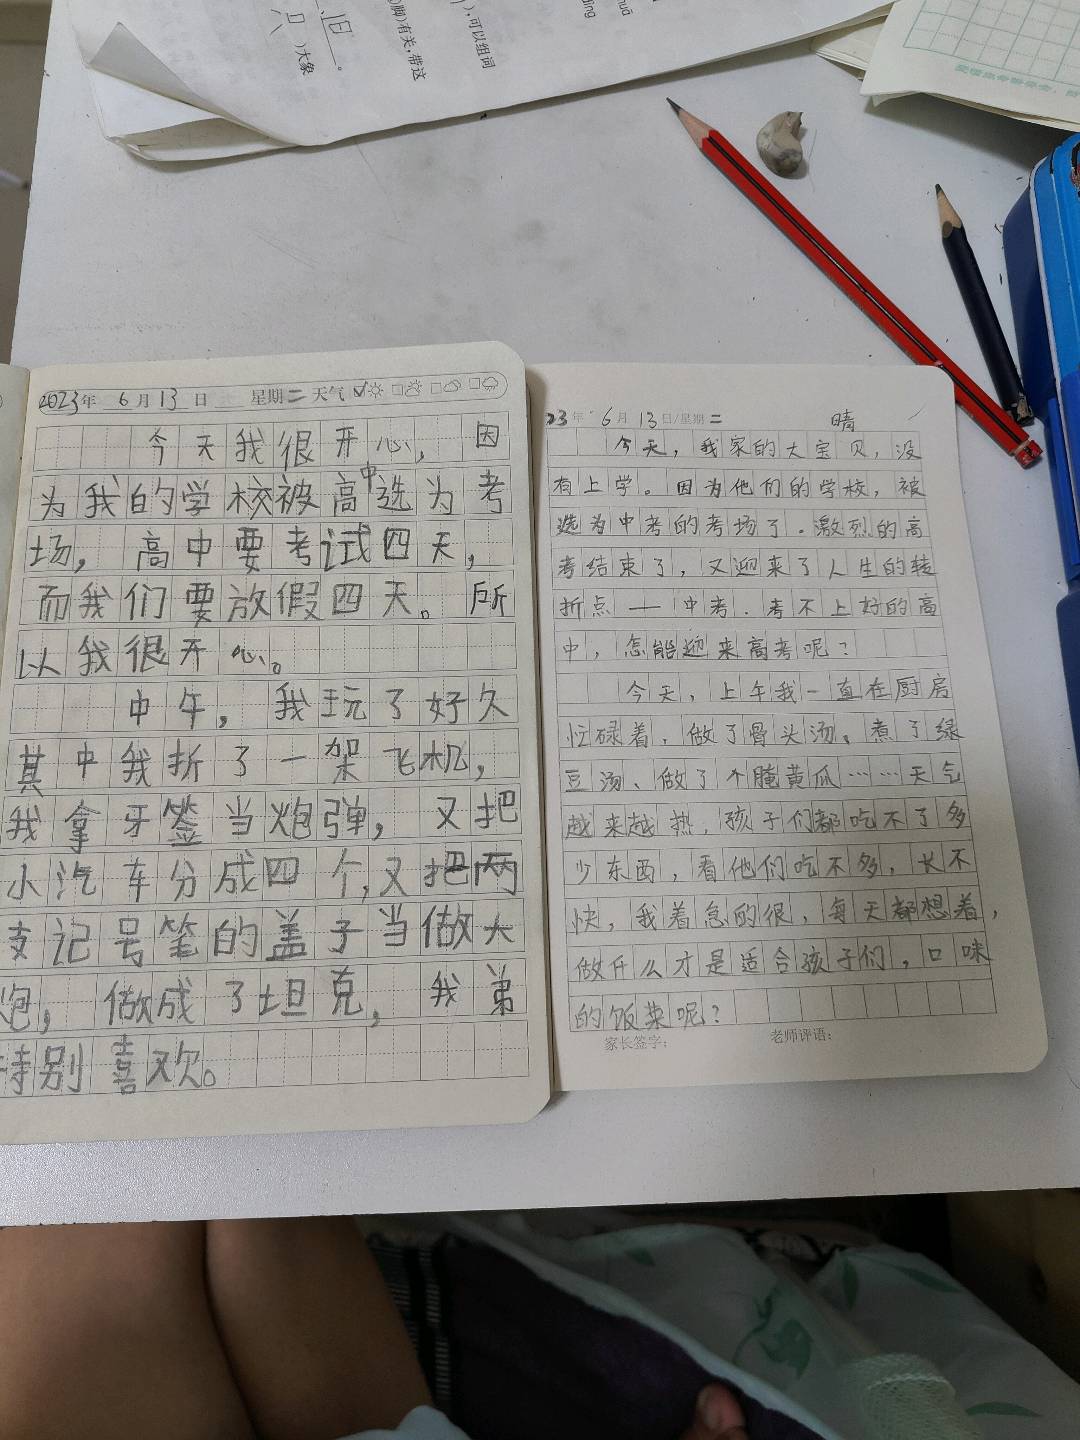 )大象
(脚)有关,带这
),可以组词
ding
2023年 6月13日 星期二 天气
今天我很开心,因
为我的学校被高中选为考
场,高中要考试四天,
而我们要放假四天。所
以我很开心。
中午,我玩了好久
其中我折了一架飞机,
我拿牙签当炮弹,又把
小汽车分成四个,又把两
支记号笔的盖子当做大
炮,做成了坦克,我弟
特别喜欢。
23年 6月13日/星期二 晴
今天,我家的大宝贝,没
有上学。因为他们的学校,被
选为中考的考场了.激烈的高
考结束了,又迎来了人生的转
折点——中考.考不上好的高
中,怎能迎来高考呢?
今天,上午我一直在厨房
忙碌着,做了骨头汤、煮了绿
豆汤、做了个腌黄瓜……天气
越来越热,孩子们都吃不了多
少东西,看他们吃不多,长不
快,我着急的很,每天都想着,
做什么才是适合孩子们,口味
的饭菜呢?
家长签字: 老师评语: